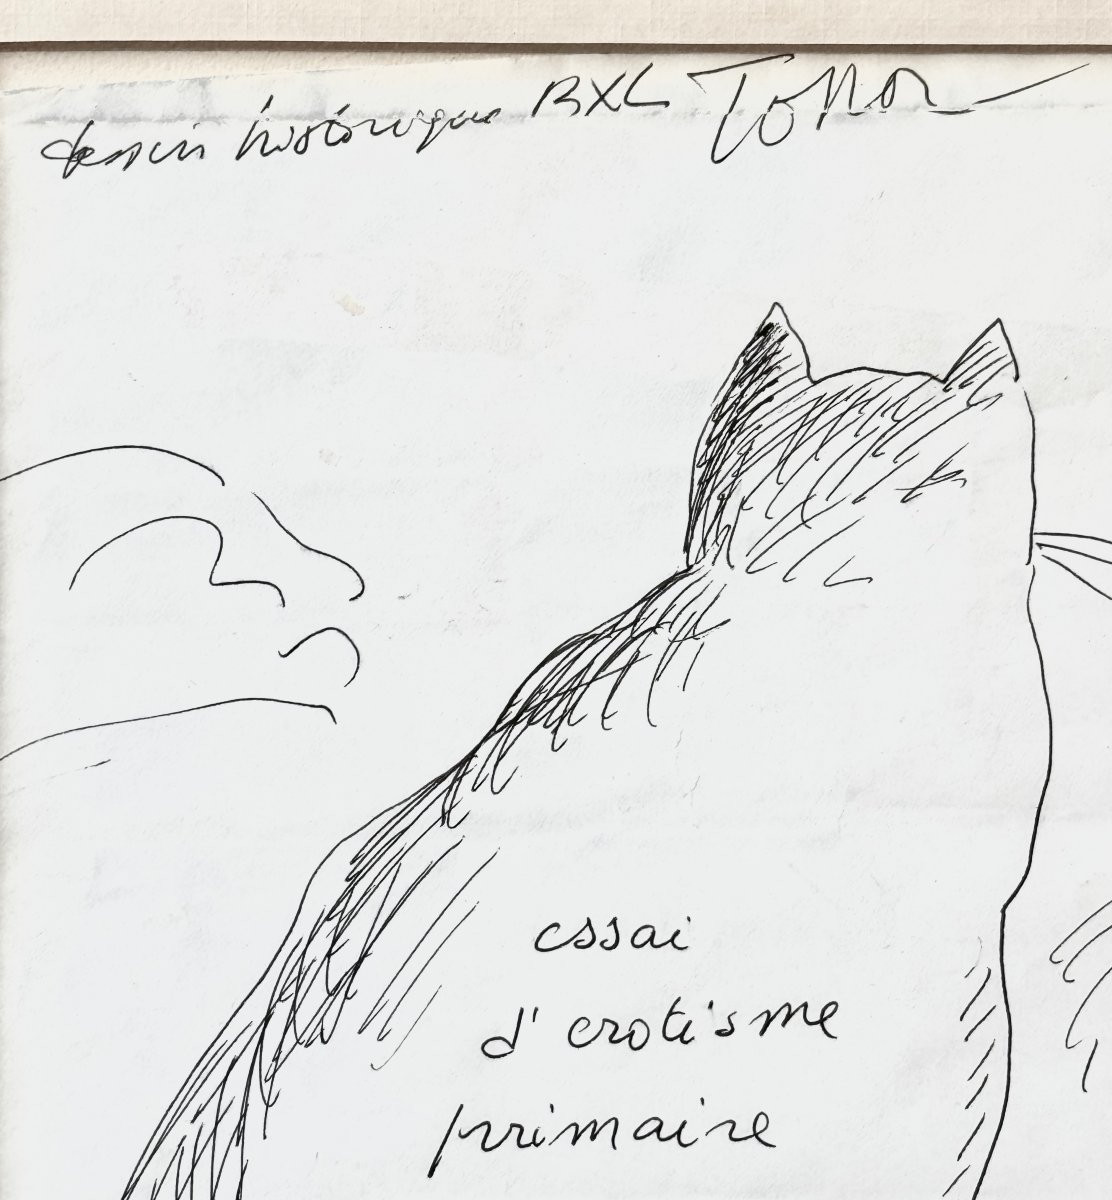 dessin historique BXL TOPOR
essai
d'erotisme
primaire